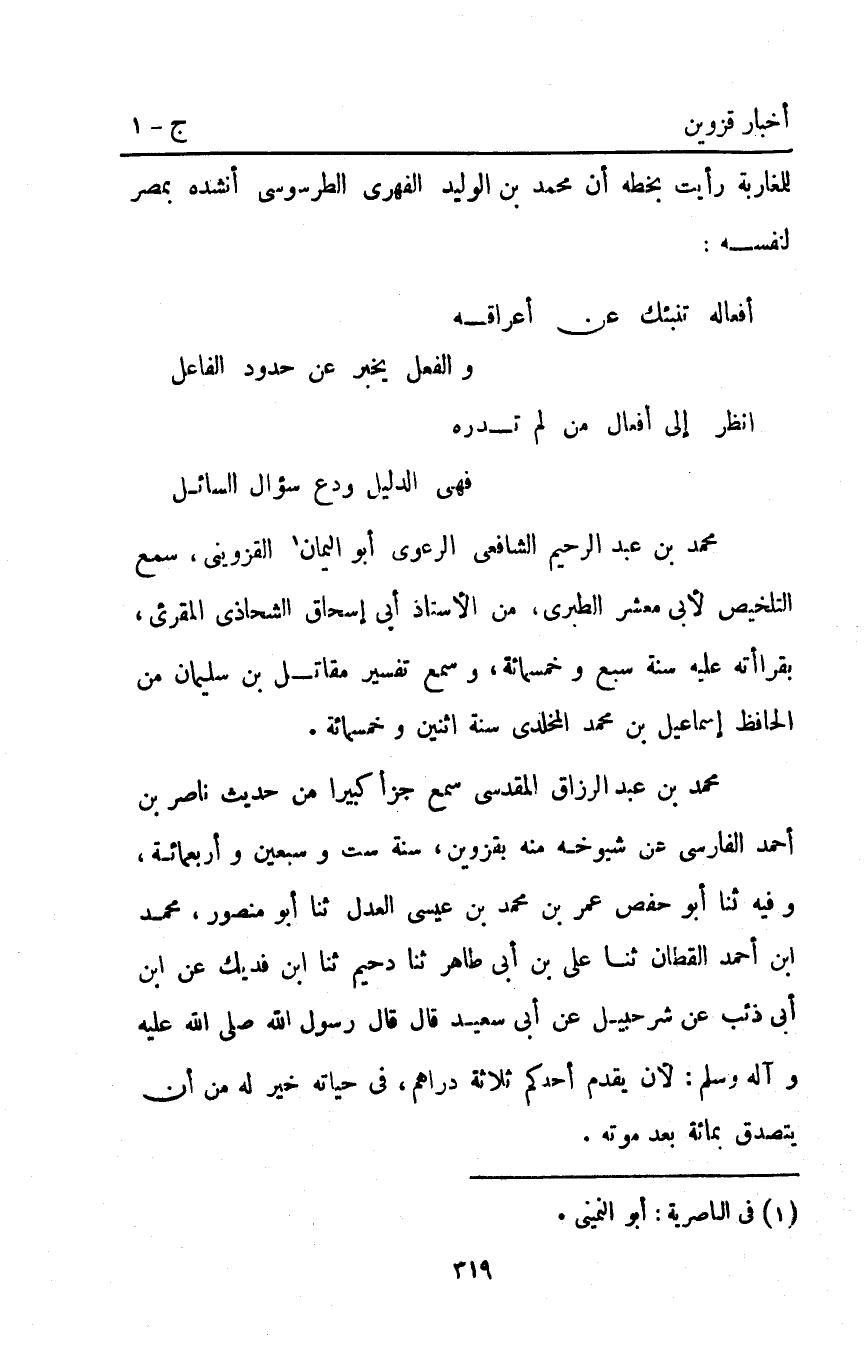 أخبار قزوين ج - ١
للغاربة رأيت بخطه أن محمد بن الوليد الفهرى الطرسوسى أنشده بمصر
لنفسه :
أفعاله تنبئك عن أعراقه
و الفعل يخبر عن حدود الفاعل
انظر إلى أفعال من لم تدره
فهى الدليل ودع سؤال السائل
محمد بن عبد الرحيم الشافعى الرعوى أبو اليمان١ القزوينى، سمع
التلخيص لأبى معشر الطبرى، من الأستاذ أبى إسحاق الشحاذى المقرئ،
بقراأته عليه سنة سبع و خمسمائة، و سمع تفسير مقاتل بن سليمان من
الحافظ إسماعيل بن محمد المخلدى سنة اثنين و خمسمائة .
محمد بن عبد الرزاق المقدسى سمع جزأ كبيرا من حديث ناصر بن
أحمد الفارسى عن شيوخه منه بقزوين، سنة ست و سبعين و أربعمائة،
و فيه ثنا أبو حفص عمر بن محمد بن عيسى العدل ثنا أبو منصور، محمد
ابن أحمد القطان ثنا على بن أبى طاهر ثنا دحيم ثنا ابن فديك عن ابن
أبى ذئب عن شرحبيل عن أبى سعيد قال قال رسول الله صلى الله عليه
و آله وسلم : لأن يقدم أحدكم ثلاثة دراهم، فى حياته خير له من أن
يتصدق بمائة بعد موته .
(١) فى الناصرية : أبو النمينى .
٣١٩